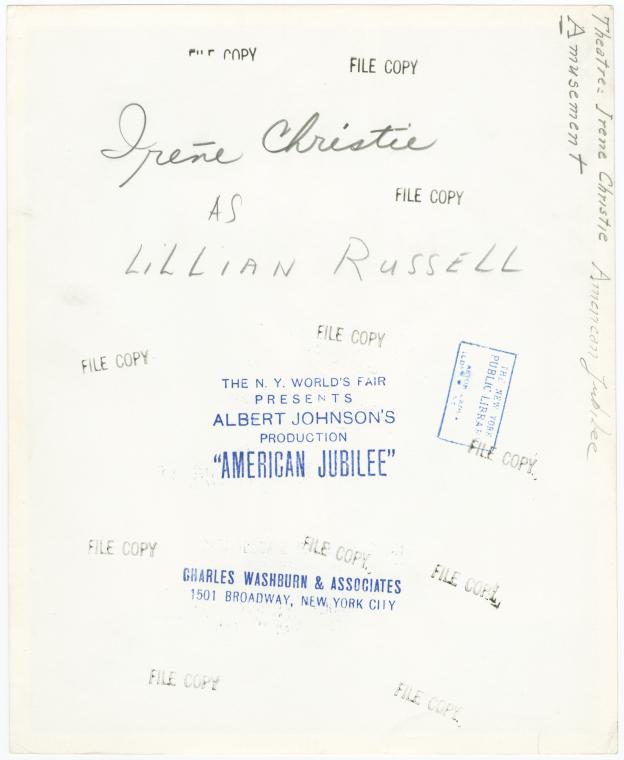 FILE COPY
FILE COPY
Irene Christie
FILE COPY
AS
LILLIAN RUSSELL
FILE COPY
FILE COPY
THE N. Y. WORLD'S FAIR
PRESENTS
ALBERT JOHNSON'S
PRODUCTION
"AMERICAN JUBILEE"
THE NEW YORK
PUBLIC LIBRARY
FILE COPY
FILE COPY
FILE COPY
FILE COPY
CHARLES WASHBURN & ASSOCIATES
1501 BROADWAY, NEW YORK CITY
FILE COPY
FILE COPY
Theatre: Irene Christie American Jubilee
Amusement